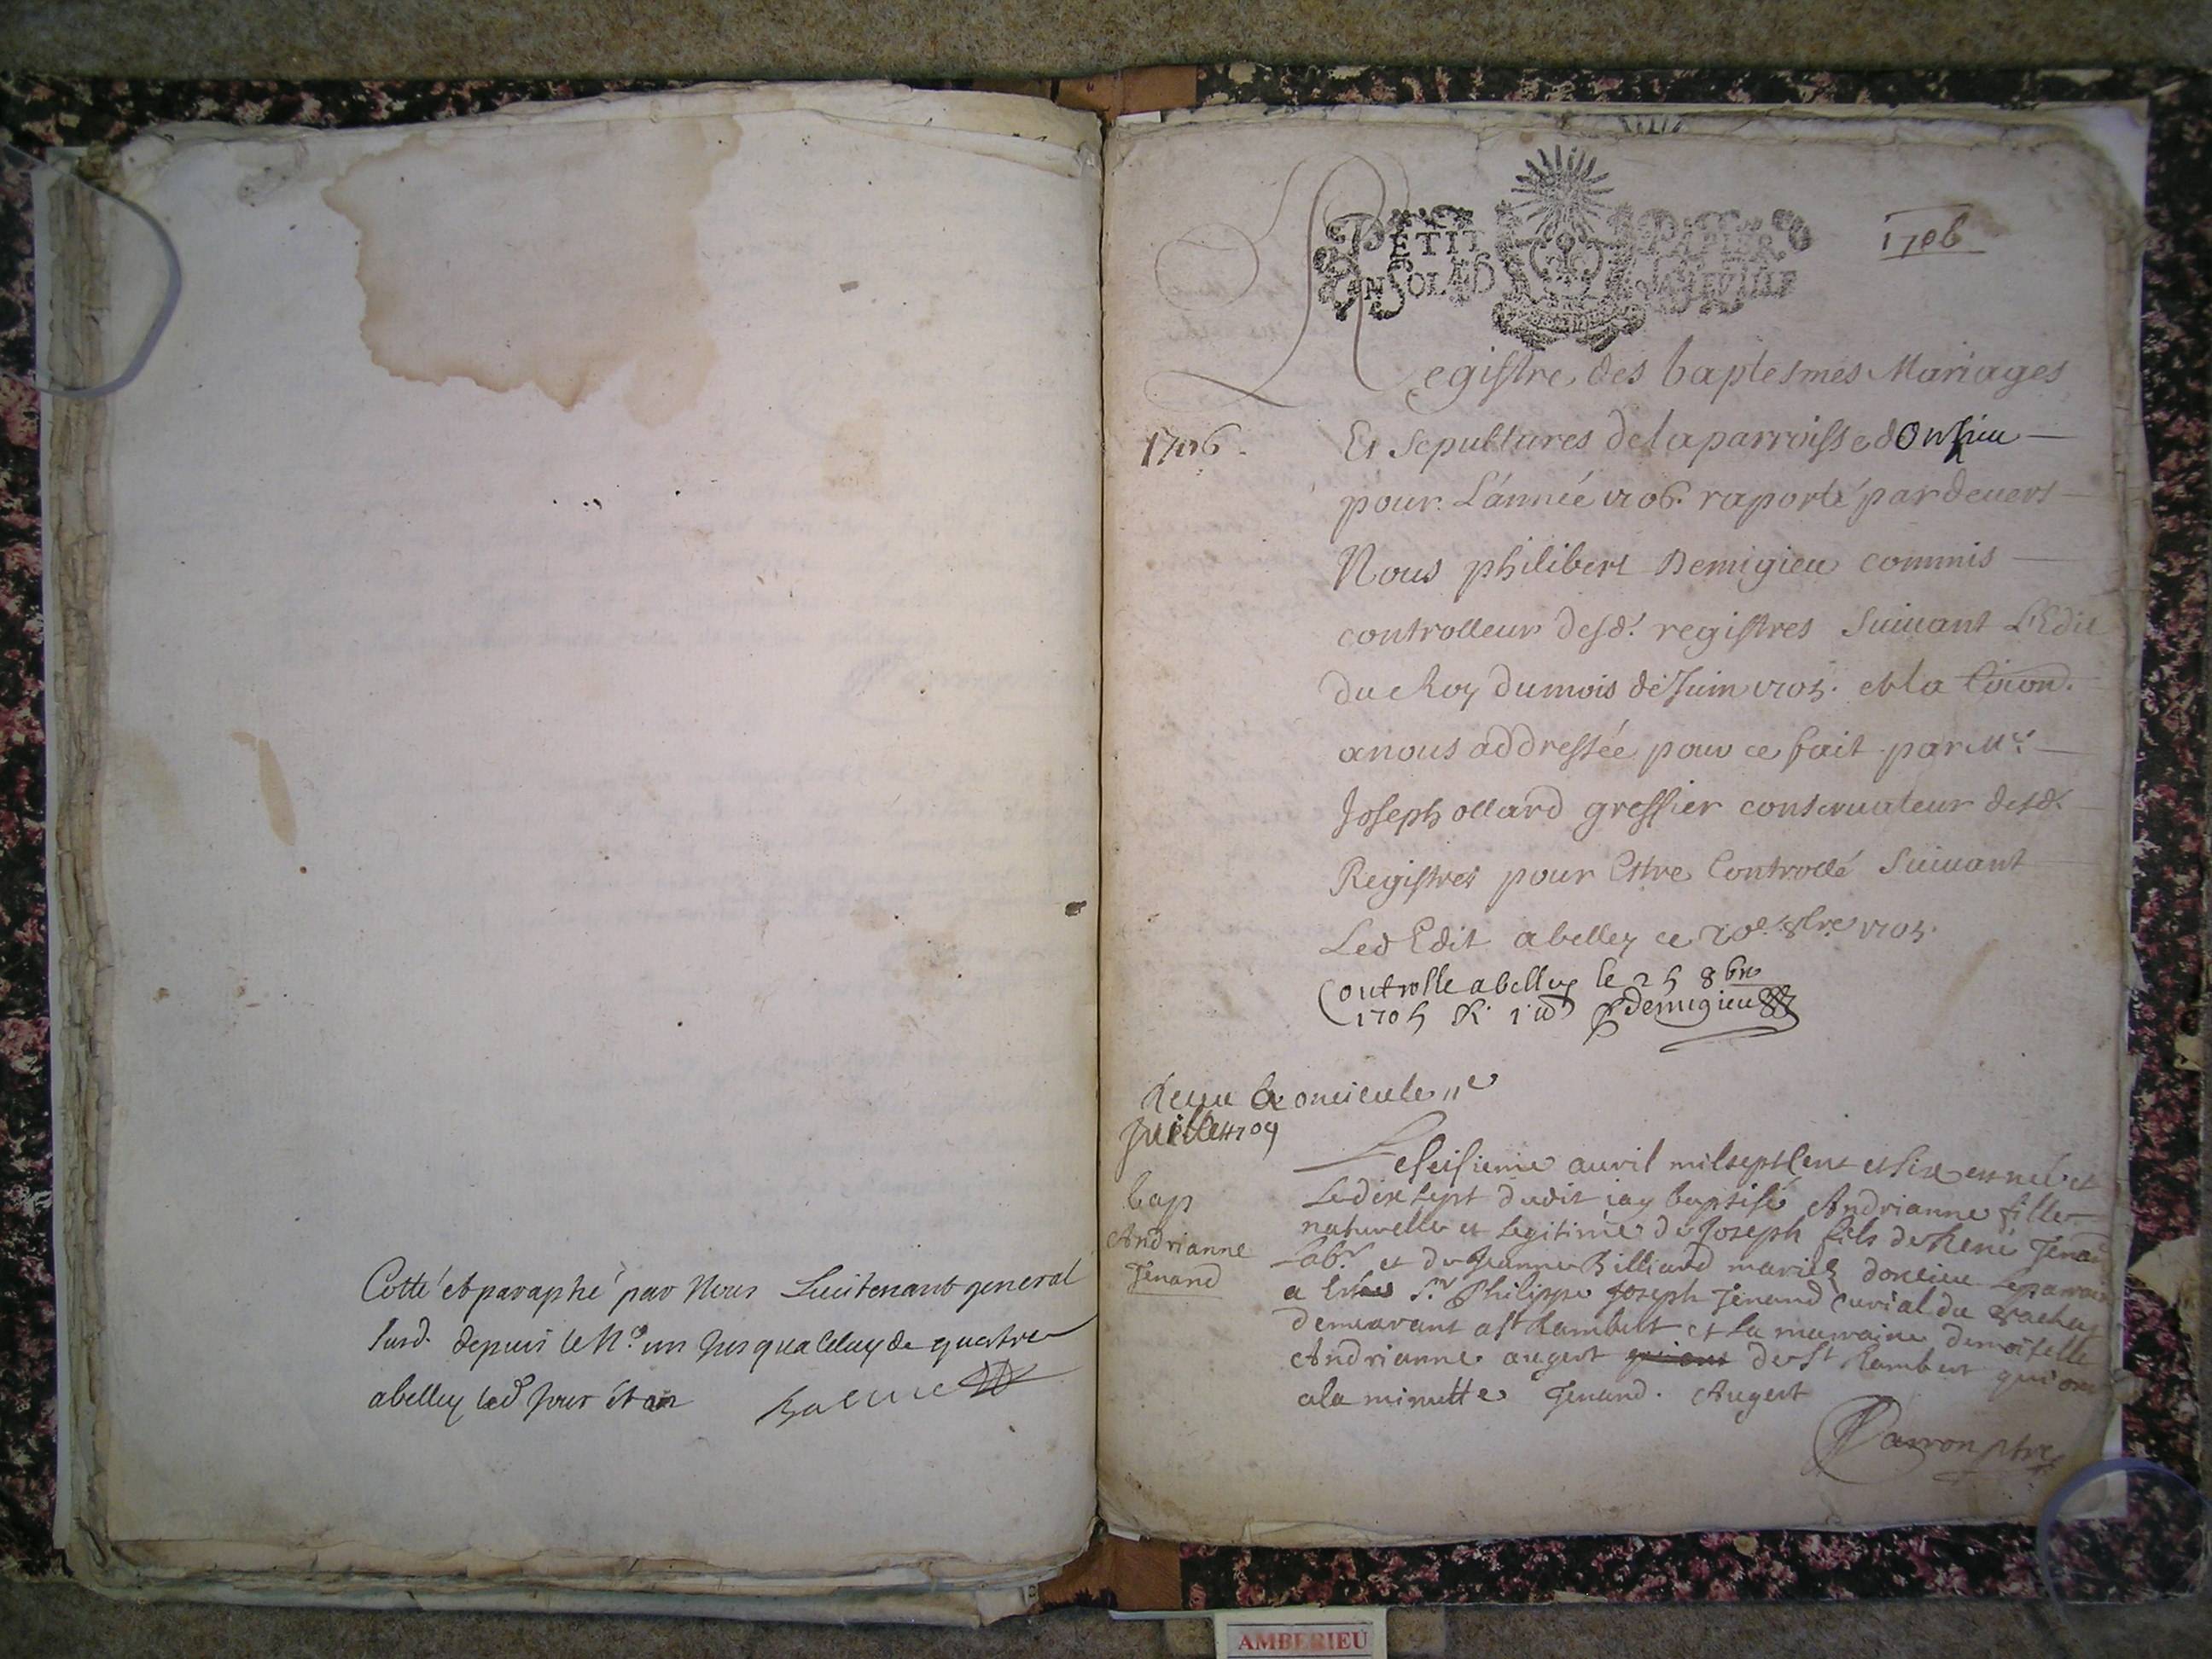 Cotté et paraphé par Nous Lieutenant general
susd. depuis le N.º un Jusqua Celuy de quatre
abelley led Jour et an
PETIT PAPIER
EN SOLZ LA FEVILLE
1706
Registre des baptesmes Mariages
1706.
Et Sepultures de la parroisse d Onsieu
pour L'année 1706. raporté pardevers
Nous philibert Demigieu commis
controlleur desd.t registres Suivant L'Edit
du Roy du mois de Juin 1705. et la Com̄on.
a nous addressée pour ce fait par Mr.
Joseph ollard greffier conservateur desd.
Registres pour Estre Controllé Suivant
Led Edit a belley ce 20e. 8bre 1705.
Controlle a belley le 25 8bre
1705 R. 1 Demigieu
Juillet 1709
Le seisieme avril mil sept Cent et six est né et
Bap
Andrianne
Jenand
Le dix sept dudit iay baptisé Andrianne fille
naturelle et Legitime de Joseph fils de René Jenand
Labr. et de Jeanne Billiard mariez donsieu Le parrain
a Sr. Philippe Joseph Jenand Curial du
demeurant a st Rambert et La marraine demoiselle
Andrianne augert de St Rambert qui ont
a la minutte Jenand. Augert
Parron ptre
AMBERIEU